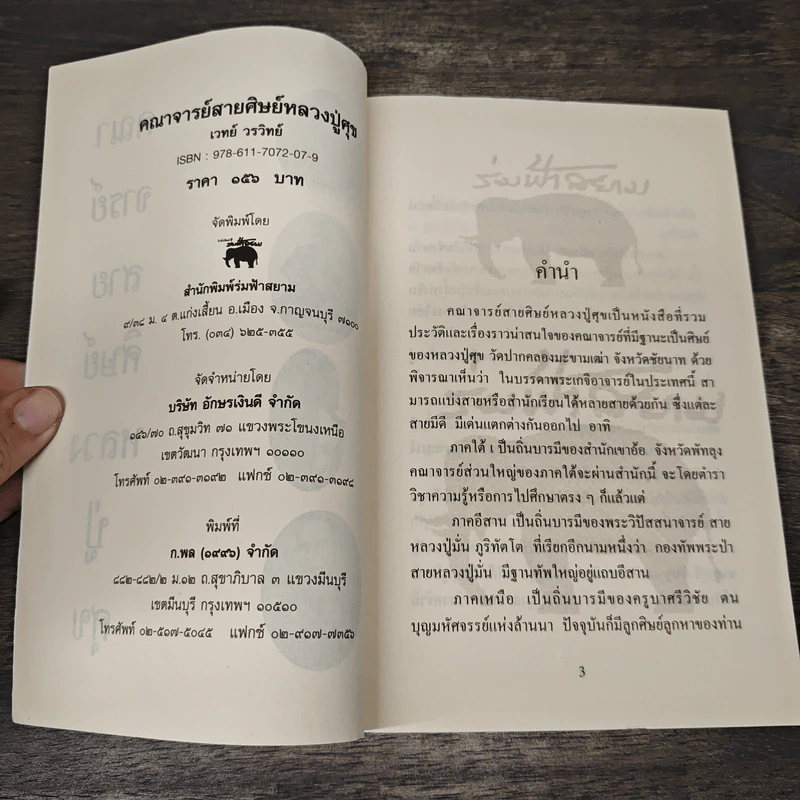 คณาจารย์สายศิษย์หลวงปู่ศุข
เวทย์ วรวิทย์
ISBN : 978-611-7072-07-9
ราคา ๑๕๖ บาท
จัดพิมพ์โดย
ร่มฟ้าสยาม
สำนักพิมพ์ร่มฟ้าสยาม
๙/๓๘ ม. ๔ ต.แก่งเสี้ยน อ.เมือง จ.กาญจนบุรี ๗๑๐๐
โทร. (๐๓๔) ๖๒๕-๓๕๕
จัดจำหน่ายโดย
บริษัท อักษรเงินดี จำกัด
๑๔๖/๗๐ ถ.สุขุมวิท ๗๑ แขวงพระโขนงเหนือ
เขตวัฒนา กรุงเทพฯ ๑๐๑๑๐
โทรศัพท์ ๐๒-๓๙๑-๓๑๙๒ แฟกซ์ ๐๒-๓๙๑-๓๑๙๔
พิมพ์ที่
ก.พล (๑๙๙๖) จำกัด
๘๘๒-๘๘๒/๒ ม.๑๒ ถ.สุขาภิบาล ๓ แขวงมีนบุรี
เขตมีนบุรี กรุงเทพฯ ๑๐๕๑๐
โทรศัพท์ ๐๒-๕๑๗-๕๐๔๕ แฟกซ์ ๐๒-๙๑๗-๗๓๕๖
ร่มฟ้าสยาม
คำนำ
คณาจารย์สายศิษย์หลวงปู่ศุขเป็นหนังสือที่รวม
ประวัติและเรื่องราวน่าสนใจของคณาจารย์ที่มีฐานะเป็นศิษย์
ของหลวงปู่ศุข วัดปากคลองมะขามเฒ่า จังหวัดชัยนาท ด้วย
พิจารณาเห็นว่า ในบรรดาพระเกจิอาจารย์ในประเทศนี้ สา
มารถแบ่งสายหรือสำนักเรียนได้หลายสายด้วยกัน ซึ่งแต่ละ
สายมีดี มีเด่นแตกต่างกันออกไป อาทิ
ภาคใต้ เป็นถิ่นบารมีของสำนักเขาอ้อ จังหวัดพัทลุง
คณาจารย์ส่วนใหญ่ของภาคใต้จะผ่านสำนักนี้ จะโดยตำรา
วิชาความรู้หรือการไปศึกษาตรง ๆ ก็แล้วแต่
ภาคอีสาน เป็นถิ่นบารมีของพระวิปัสสนาจารย์ สาย
หลวงปู่มั่น ภูริทัตโต ที่เรียกอีกนามหนึ่งว่า กองทัพพระป่า
สายหลวงปู่มั่น มีฐานทัพใหญ่อยู่แถบอีสาน
ภาคเหนือ เป็นถิ่นบารมีของครูบาศรีวิชัย ตน
บุญมหัศจรรย์แห่งล้านนา ปัจจุบันก็มีลูกศิษย์ลูกหาของท่าน
3